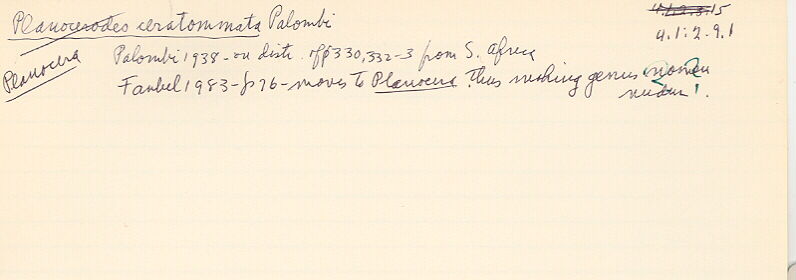 Planocerodes ceratommata Palombi
4.1.2.8.15
4.1.2.9.1
Planocera
Palombi 1938 - on distr. of p 330, 332-3 from S. Africa
Faubel 1983 - p 76 - moves to Planocera thus making genus nomen
nudum!